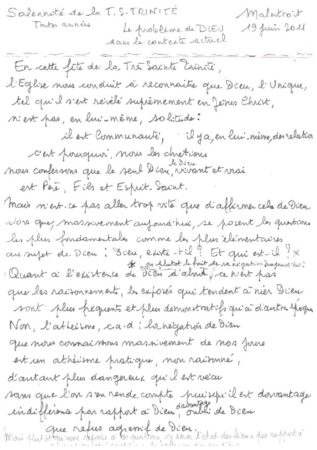 Solennité de la T.S. TRINITÉ
Malestroit
Toutes années
19 juin 2011
Le problème de DIEU
dans le contexte actuel
En cette fête de la Très Sainte Trinité,
l'Eglise nous conduit à reconnaître que Dieu, l'Unique,
tel qu'il s'est révélé suprêmement en Jésus Christ,
n'est pas, en lui-même, solitude :
il est Communauté, il y a, en lui-même, des relations
c'est pourquoi, nous les chrétiens
nous confessons que le seul Dieu, le Dieu vivant et vrai
est Père, Fils et Esprit Saint.
Mais n'est-ce pas aller trop vite que d'affirmer cela de Dieu
alors que, massivement aujourd'hui, se posent les questions
les plus fondamentales comme les plus élémentaires
au sujet de Dieu : Dieu, existe-t-il ? Et qui est-il ? x
Quant à l'existence de Dieu d'abord, ce n'est pas
que les raisonnements, les exposés qui tendent à nier Dieu
sont plus fréquents et plus démonstratifs qu'à d'autres époques
Non, l'athéisme, c.à.d : la négation de Dieu
que nous connaissons massivement de nos jours
est un athéisme pratique, non raisonné,
d'autant plus dangereux qu'il est vécu
sans que l'on s'en rende compte puisqu'il est davantage
indifférence par rapport à Dieu, davantage oubli de Dieu
que refus agressif de Dieu.